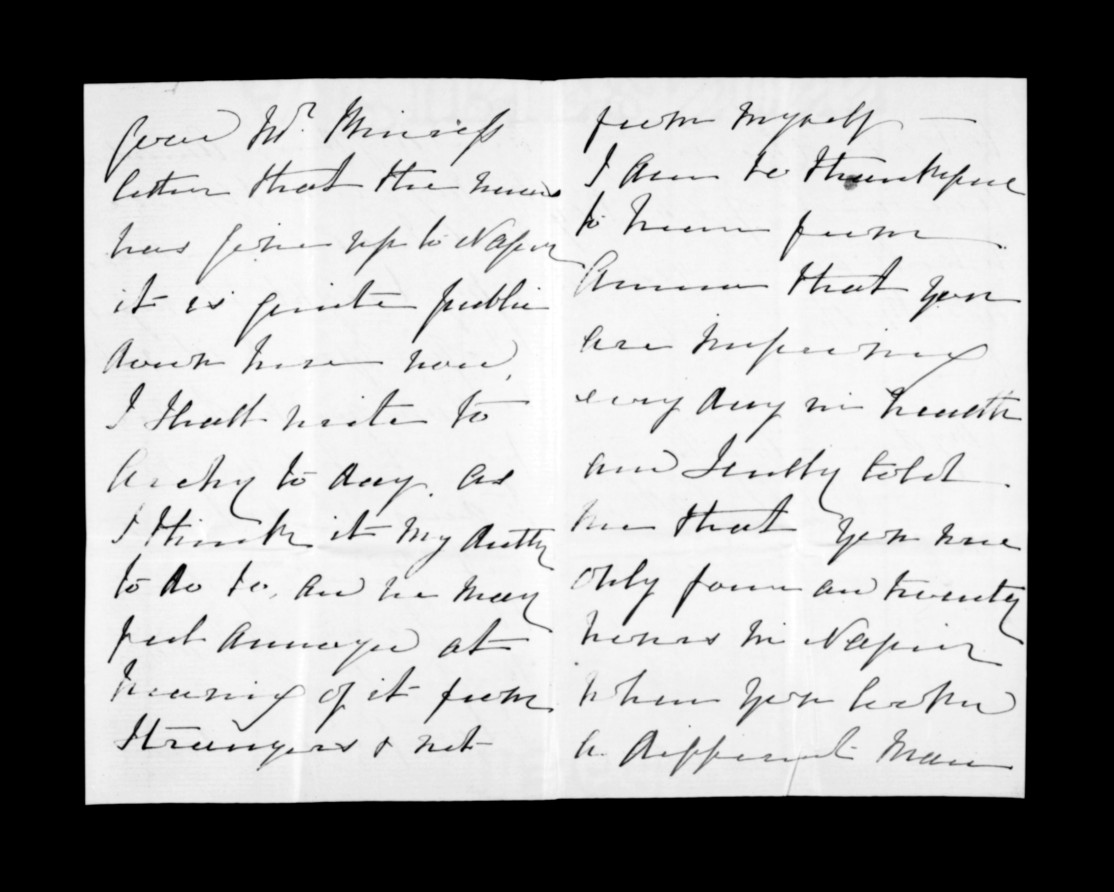 found Mr. Minniess
letter that the news
has gone up to Napier
it is quite public
down here now,
I shall write to
Archy to day. as
I think it my dutty
to do so, and he may
feel annoyed at
hearing of it from
Strangers & not
from myself —
I am so thankful
to hear from
Annie that you
are improving
every day in health
and told
me that you were
only four and twenty
hours in Napier
when you looked
a different man